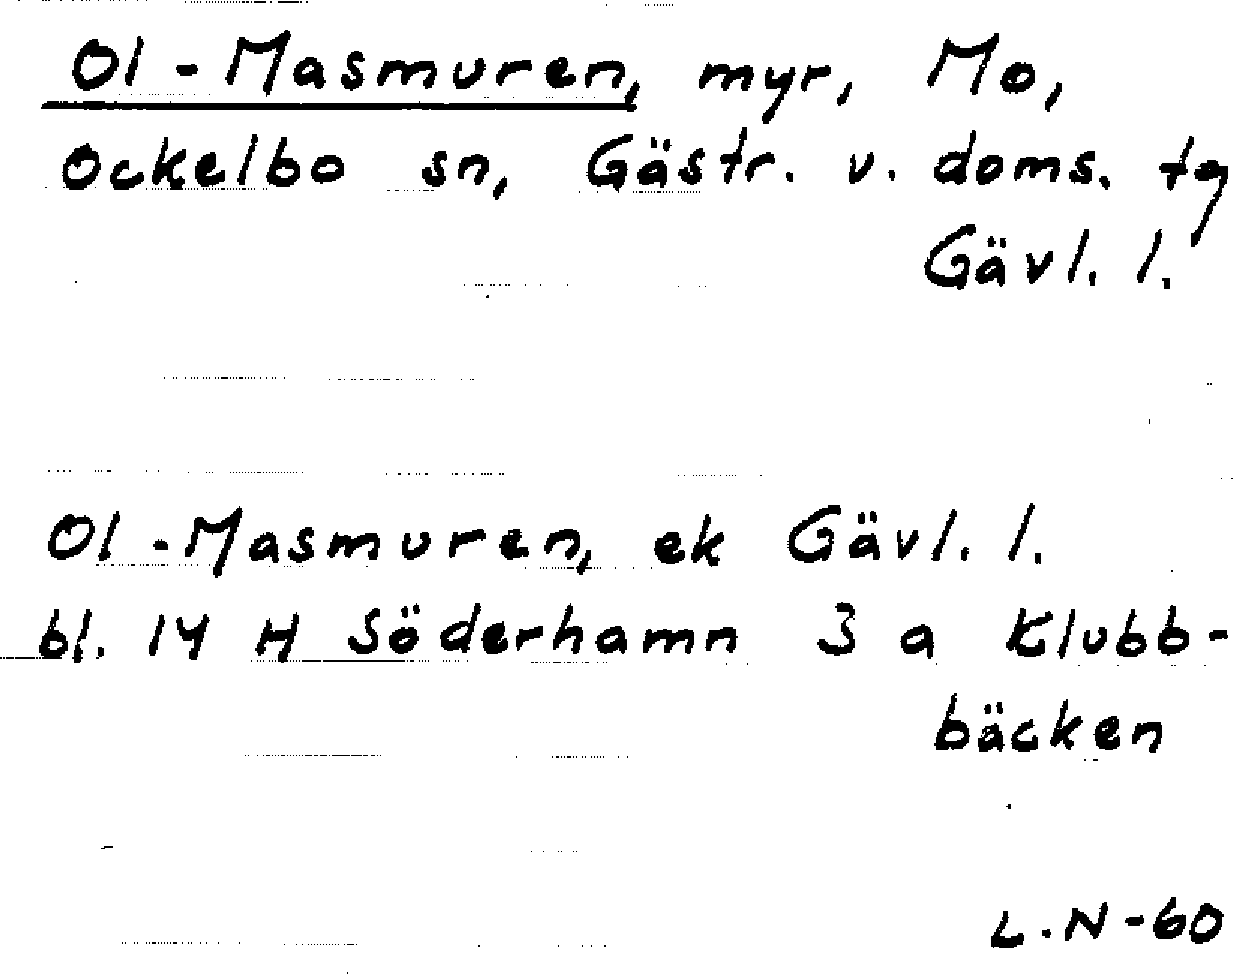 Ol-Masmuren, myr, Mo,
Ockelbo sn, Gästr. v. doms. tg
Gävl. l.
Ol-Masmuren, ek Gävl. l.
bl. 14 H Söderhamn 3 a Klubb-
bäcken
L.N-60